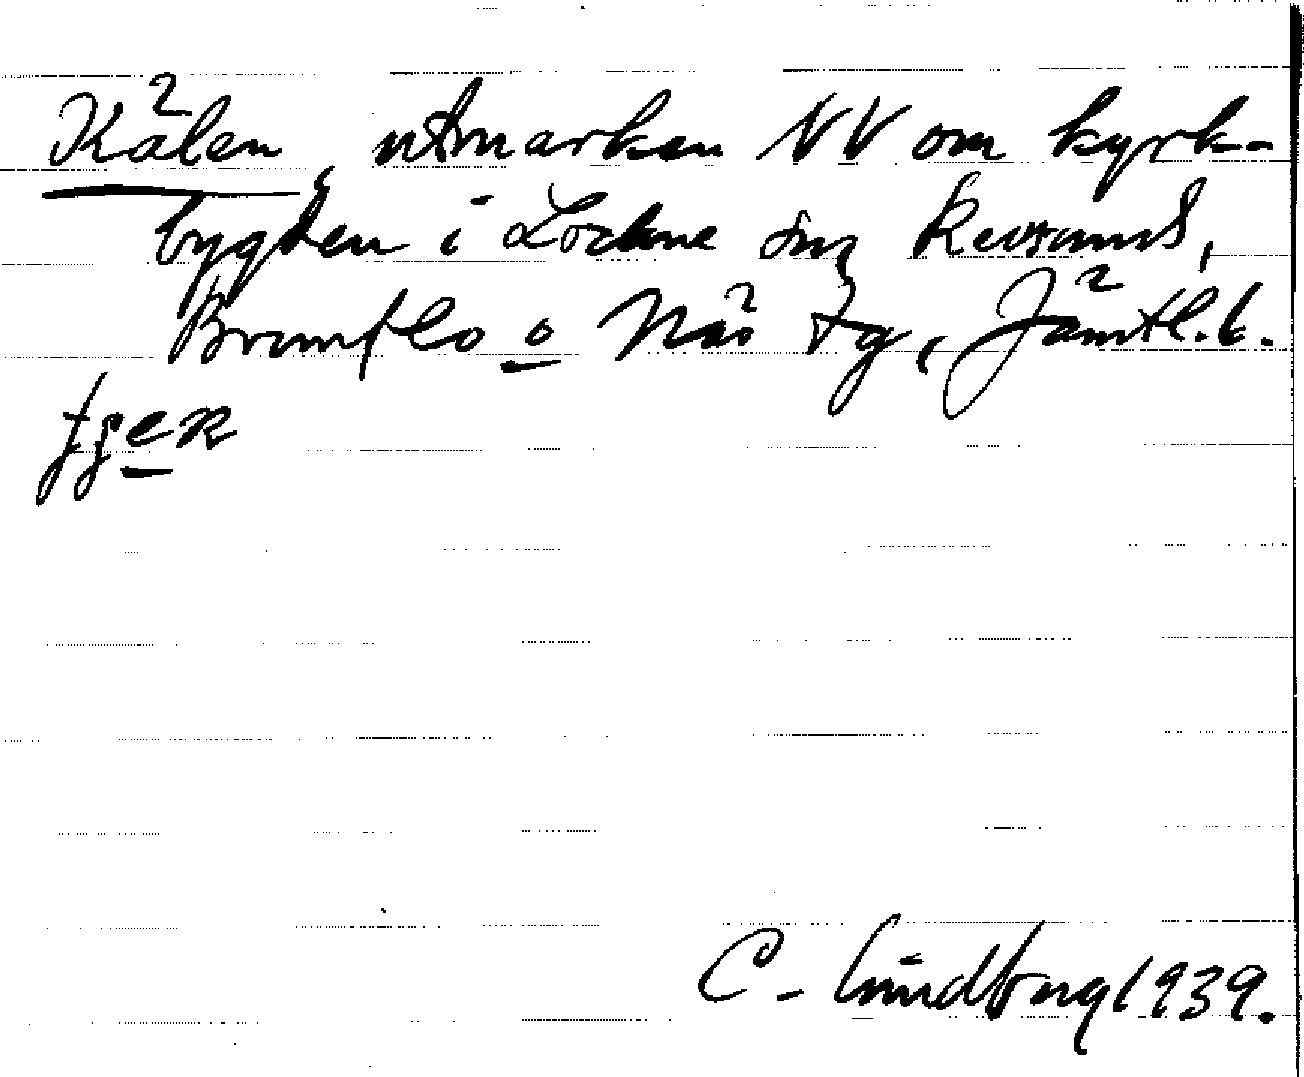 Kälen, utmarken NV om kyrk-
bygden i Lockne sn, Revsunds,
Brunflo o Näs tg, Jämtl. l.
C. Lindberg 1939.